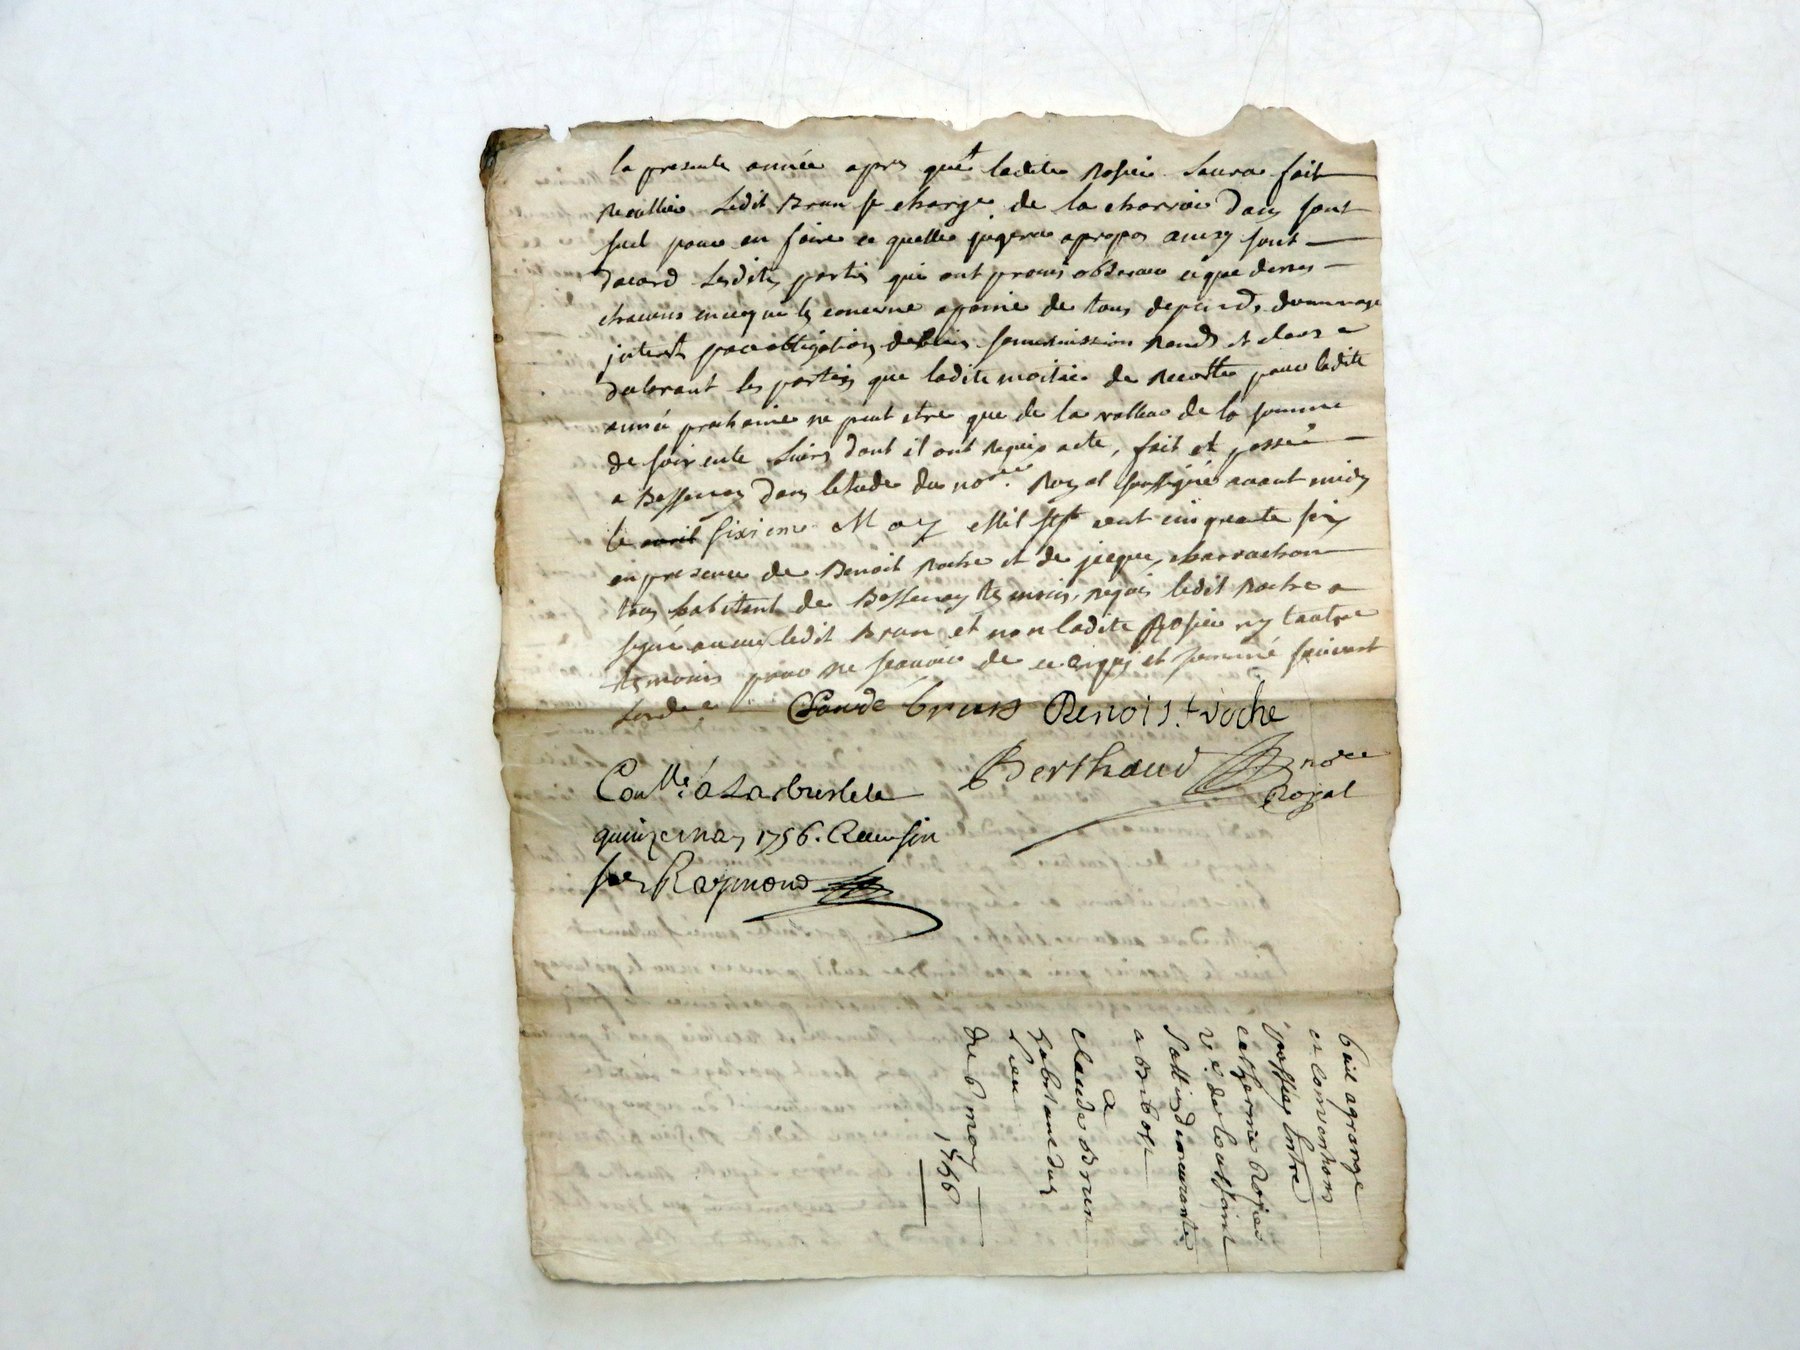 la presente année apres que ladite Rosier laura fait
Recullier Ledit Brun se charge de la charroier dans sont
sud pour en faire ce quelle jugera apropos ainsy sont
dacord Lesdites parties qui ont promis observer ceque dessus
chacuns en ce qui les concerne apeine de tous depends dommage
interest par obligation de biens soumission Renonds et clauses
declarant les parties que ladite moitié de Recolte pour ladite
année prochaine ne peut etre que de la valleur de la somme
de soixente Livres dont il ont Requis acte, fait et passé
a Bessenay dans letude du no.re Royal soussigné avant midy
le avril sixieme May Mil sept cent cinquante six
en presence de Benoit Roche et de jacques charrachon
tous habitant de Bessenay temoins Requis ledit Roche a
signé avec ledit Brun et non ladite Rosier ny lautre
temoins pour ne scavoir de ce enquis et sommé suivant
Lord.ce
Claude brun Benoist roche
Berthaud no.re
Royal
Con.llé a Larbresle le
quinze may 1756. Reçu six
sols Raymond
bail agrange
et conventions
passées Entre
catherine Rosier
v.e de
demeurante
a Bibost
a
claude Brun
habitant dud
Lieu
du 6 may
1756